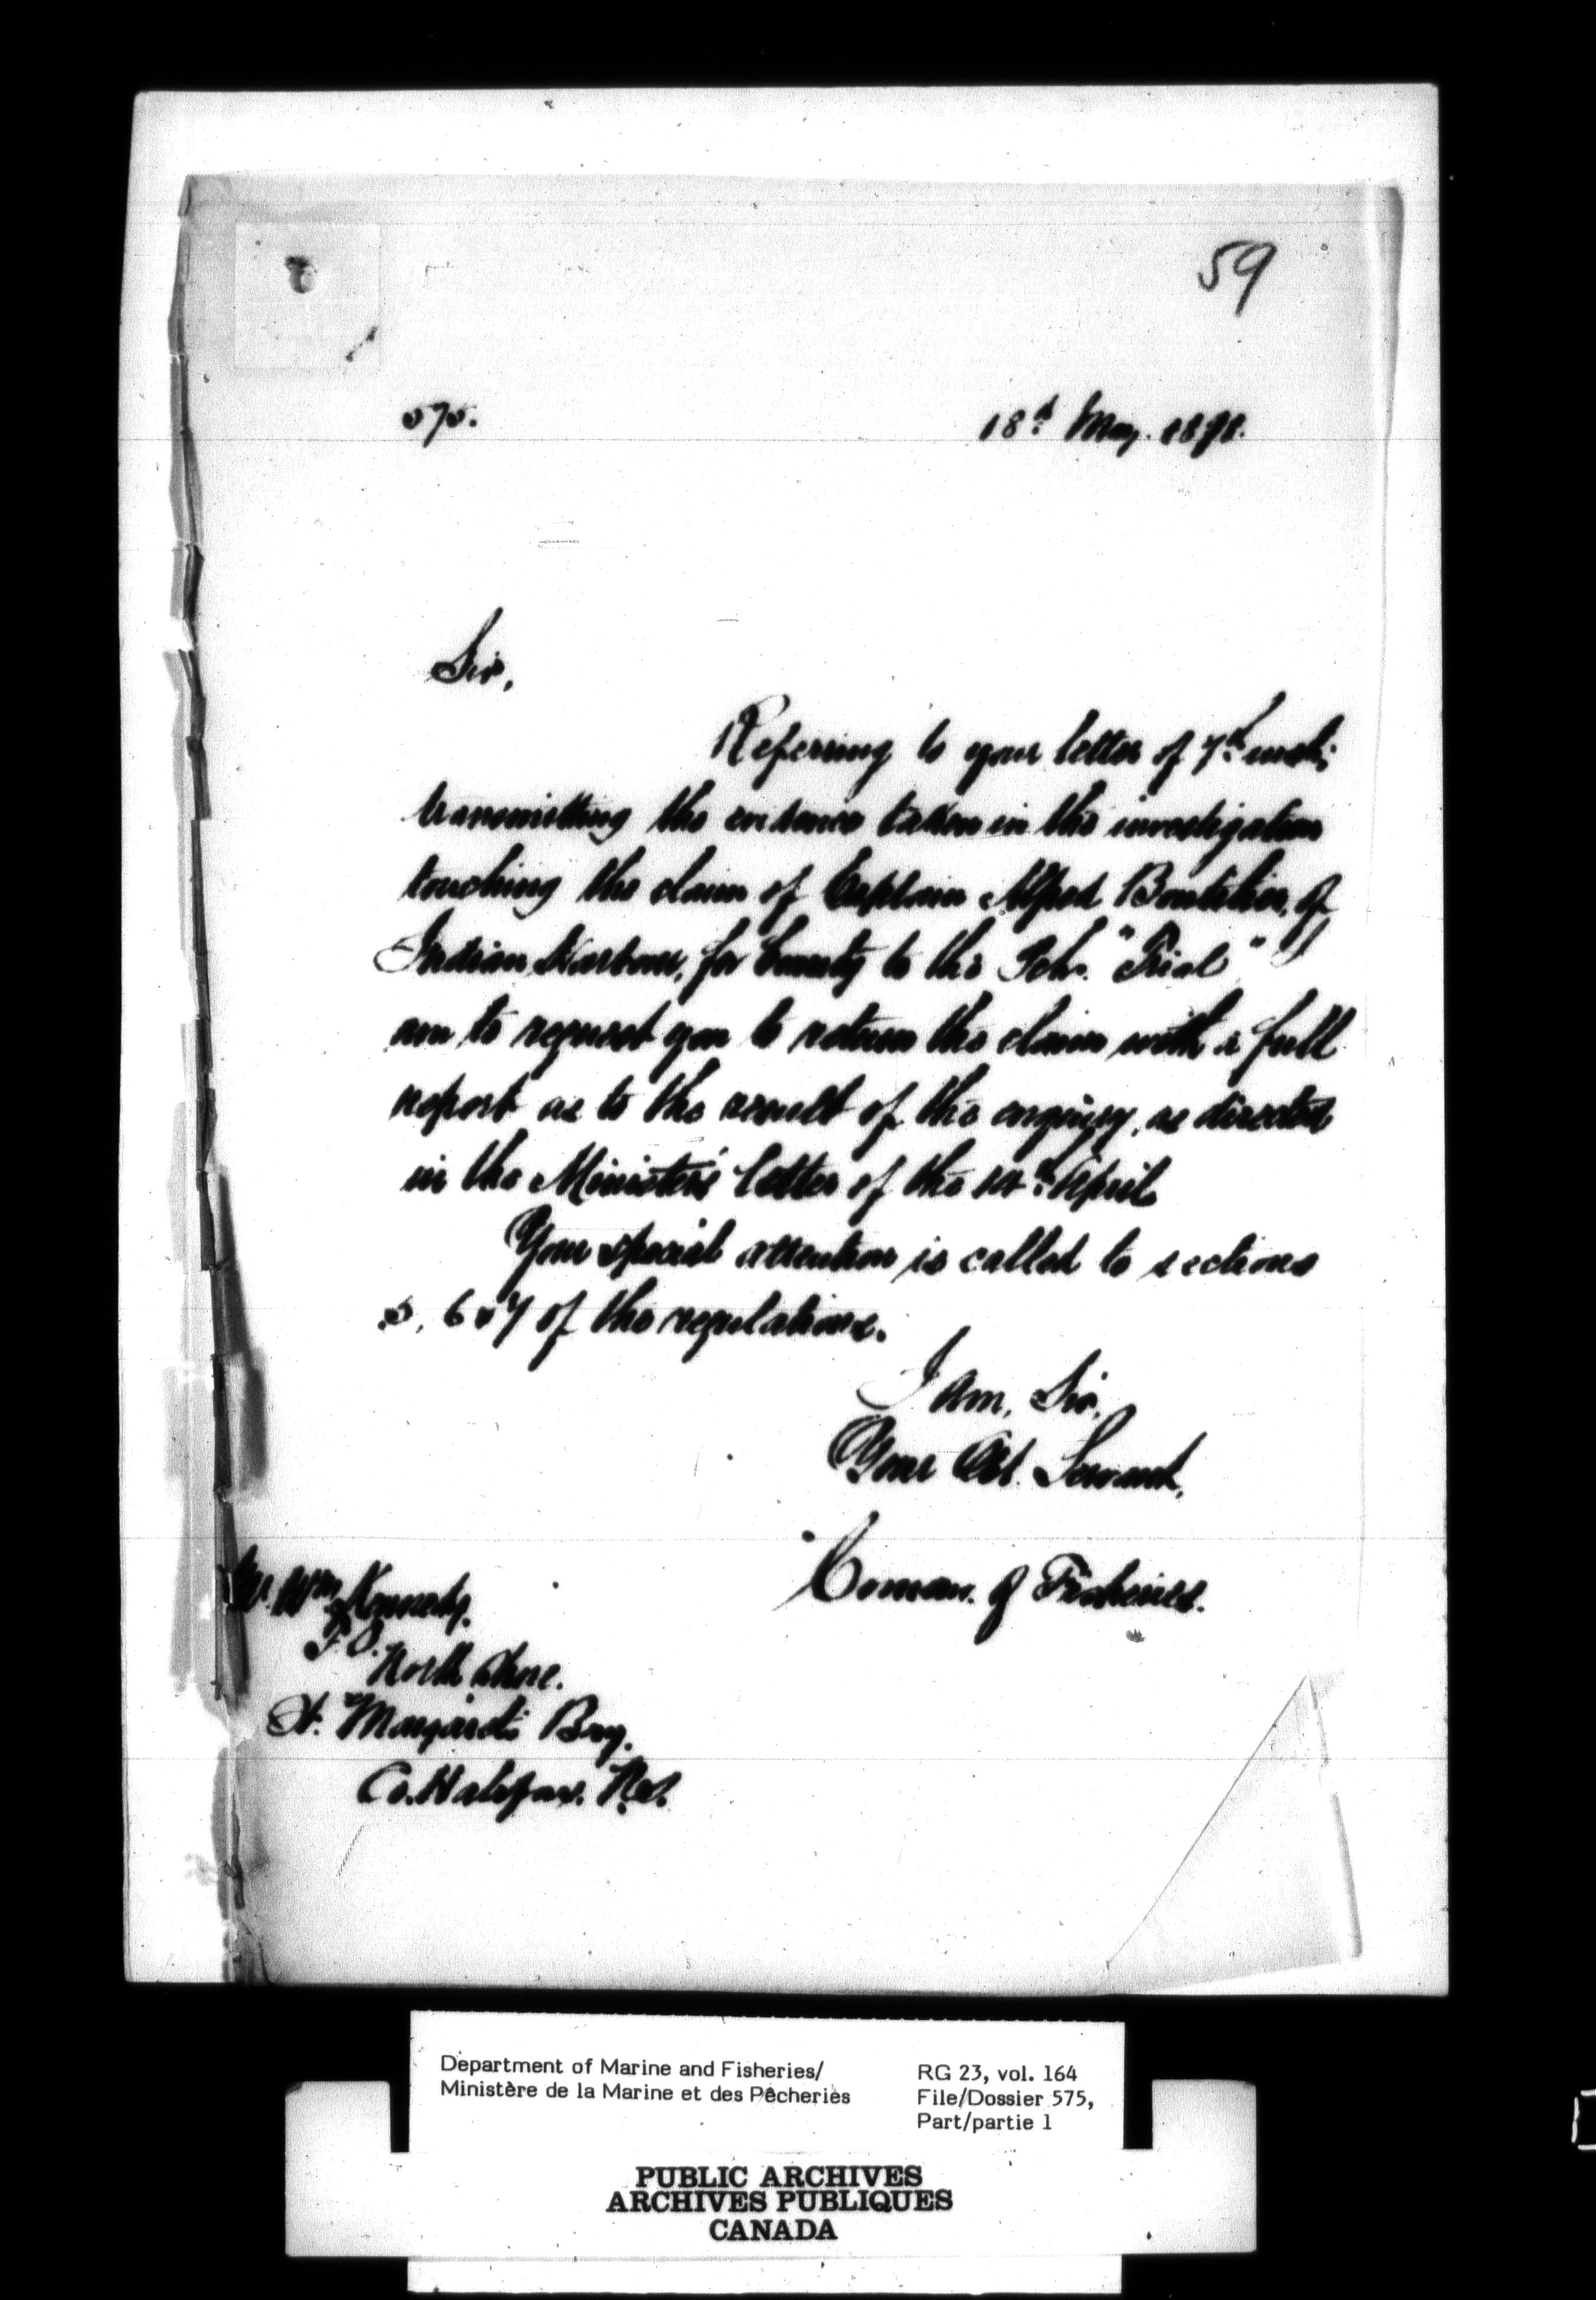 59
575.
18th May. 1891.
Sir,
Referring to your letter of 7th inst;
transmitting the evidence taken in the investigation
touching the claim of Captain Alfred Boutilier, of
Indian Harbour, for bounty to the Schr. "Trial" I
am to request you to return the claim with a full
report as to the result of the enquiry, as directed
in the Minister's letter of the 14th April.
Your special attention is called to sections
5, 6 & 7 of the regulations.
I am, Sir,
Your Obt. Servant,
of Fisheries.
Mr. Wm Kennedy.
F.O.
North Shore.
St. Margaret's Bay.
Co. Halifax. N.S.
Department of Marine and Fisheries/
Ministère de la Marine et des Pêcheries
RG 23, vol. 164
File/Dossier 575,
Part/partie 1
PUBLIC ARCHIVES
ARCHIVES PUBLIQUES
CANADA